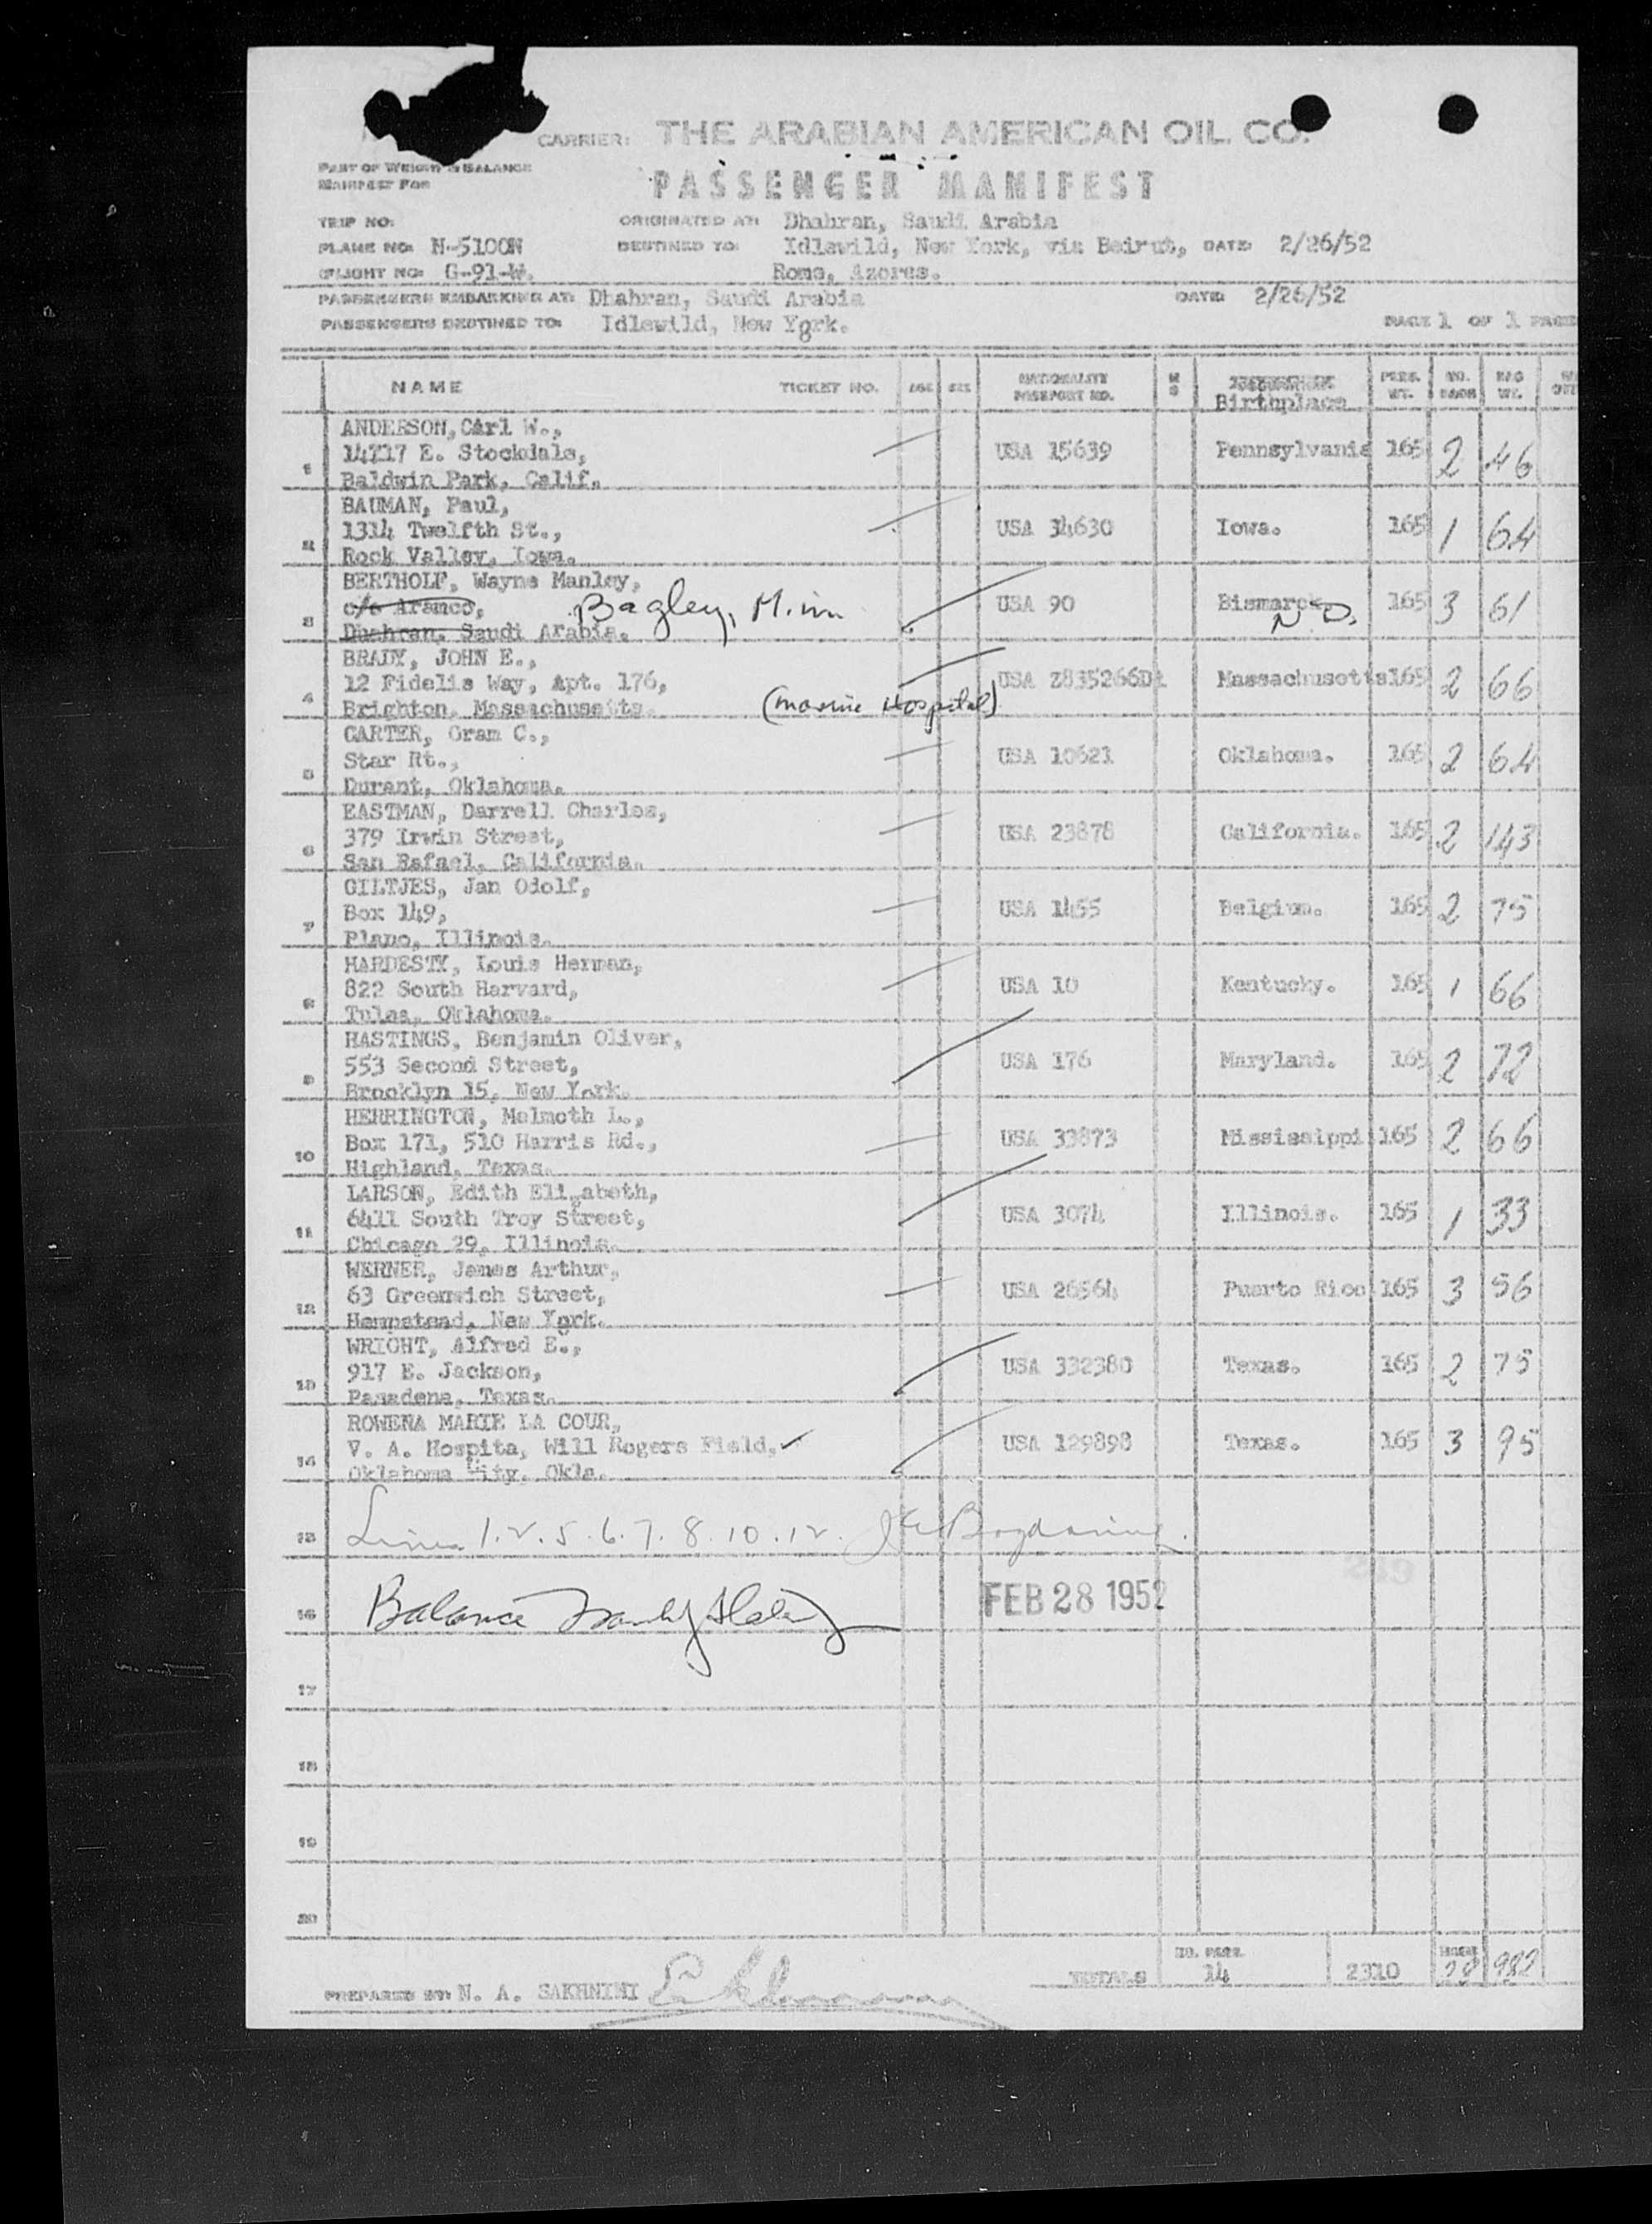 CARRIER: THE ARABIAN AMERICAN OIL CO.
PART OF WEIGHT & BALANCE
MANIFEST FOR
PASSENGER MANIFEST
TRIP NO: ORIGINATED AT: Dhahran, Saudi Arabia
PLANE NO: N-5100N DESTINED TO: Idlewild, New York, via Beirut, DATE: 2/26/52
FLIGHT NO: G-91-W. Rome, Azores.
PASSENGERS EMBARKING AT: Dhahran, Saudi Arabia DATE: 2/26/52
PASSENGERS DESTINED TO: Idlewild, New York. PAGE 1 OF 1 PAGE
NAME TICKET NO. AGE SEX NATIONALITY PASSPORT NO. M S Birthplace PERS. WT. NO. BAGS BAG WT.
ANDERSON, Carl W.,
14217 E. Stockdale, USA 15639 Pennsylvania 165 2 46
1 Baldwin Park, Calif.
BAUMAN, Paul,
1314 Twelfth St., USA 34630 Iowa. 165 1 64
2 Rock Valley, Iowa.
BERTHOLF, Wayne Manley,
c/o Aramco, Bagley, Minn USA 90 Bismarck N.D. 165 3 61
3 Dhahran, Saudi Arabia.
BRADY, JOHN E.,
12 Fidelis Way, Apt. 176, 165 2 66
Massachusetts
4 Brighton, Massachusetts. (Marine Hospital)
CARTER, Oram C.,
Star Rt., USA 10621 Oklahoma. 165 2 64
5 Durant, Oklahoma.
EASTMAN, Darrell Charles,
379 Irwin Street, USA 23878 California. 165 2 143
6 San Rafael, California.
GILTJES, Jan Odolf,
Box 149, USA 1455 Belgium. 165 2 75
7 Plano, Illinois.
HARDESTY, Louis Herman,
822 South Harvard, USA 10 Kentucky. 165 1 66
8 Tulsa, Oklahoma.
HASTINGS, Benjamin Oliver,
553 Second Street, USA 176 Maryland. 165 2 72
9 Brooklyn 15, New York.
HERRINGTON, Melmoth L.,
Box 171, 510 Harris Rd., USA 33873 Mississippi 165 2 66
10 Highland, Texas.
LARSON, Edith Elizabeth,
6411 South Troy Street, USA 3074 Illinois. 165 1 33
11 Chicago 29, Illinois.
WERNER, James Arthur,
63 Greenwich Street, USA 26564 Puerto Rico 165 3 56
12 Hempstead, New York.
WRIGHT, Alfred E.,
917 E. Jackson, USA 332380 Texas. 165 2 75
13 Pasadena, Texas.
ROWENA MARIE LA COUR,
V. A. Hospita, Will Rogers Field, USA 129898 Texas. 165 3 95
14 Oklahoma City, Okla.
15 Lines 1.2.5.6.7.8.10.12.
16 Balance FEB 28 1952
17
18
19
20
TOTALS NO. PASS. 14 2310 28 982
PREPARED BY: N. A. SAKHNINI